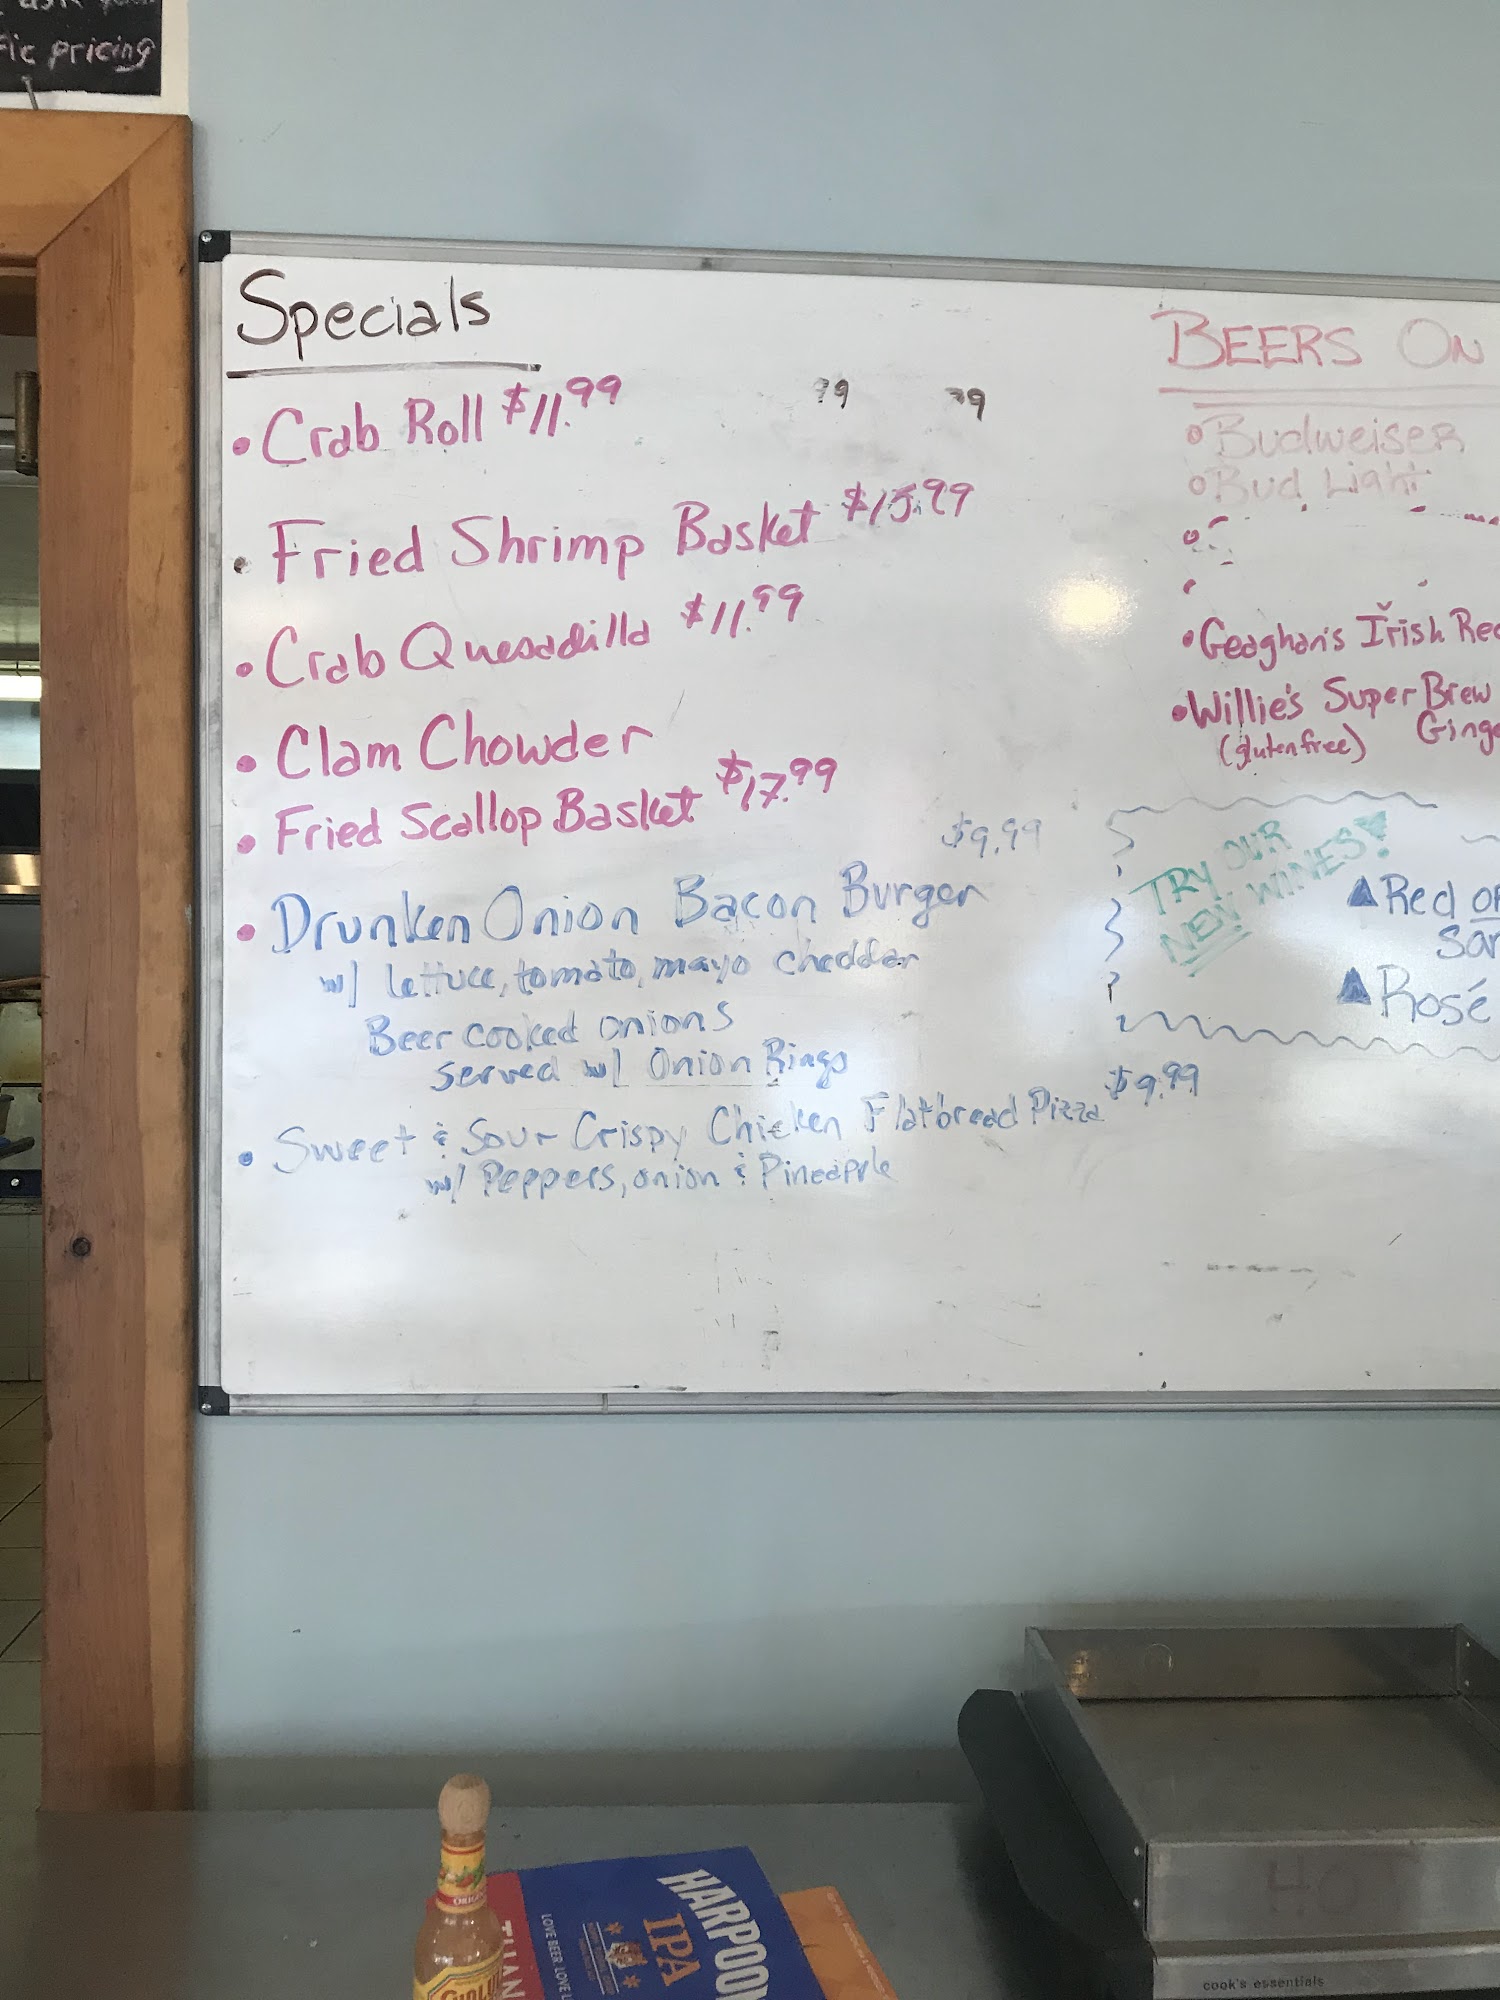 fic pricing
Specials
• Crab Roll $11.99
• Fried Shrimp Basket $15.99
• Crab Quesadilla $11.99
• Clam Chowder
• Fried Scallop Basket $17.99
• Drunken Onion Bacon Burger $9.99
w/ lettuce, tomato, mayo cheddar
Beer cooked onions
served w/ Onion Rings
• Sweet & Sour Crispy Chicken Flatbread Pizza $9.99
w/ Peppers, onion & Pineapple
BEERS ON
Budweiser
Bud Light
• Geaghan's Irish Red
• Willie's Super Brew
(gluten free) Ginge
TRY OUR
NEW WINES!
Red or
San
Rosé
HARPOON
IPA
LOVE BEER. LOVE L
HO
cook's essentials